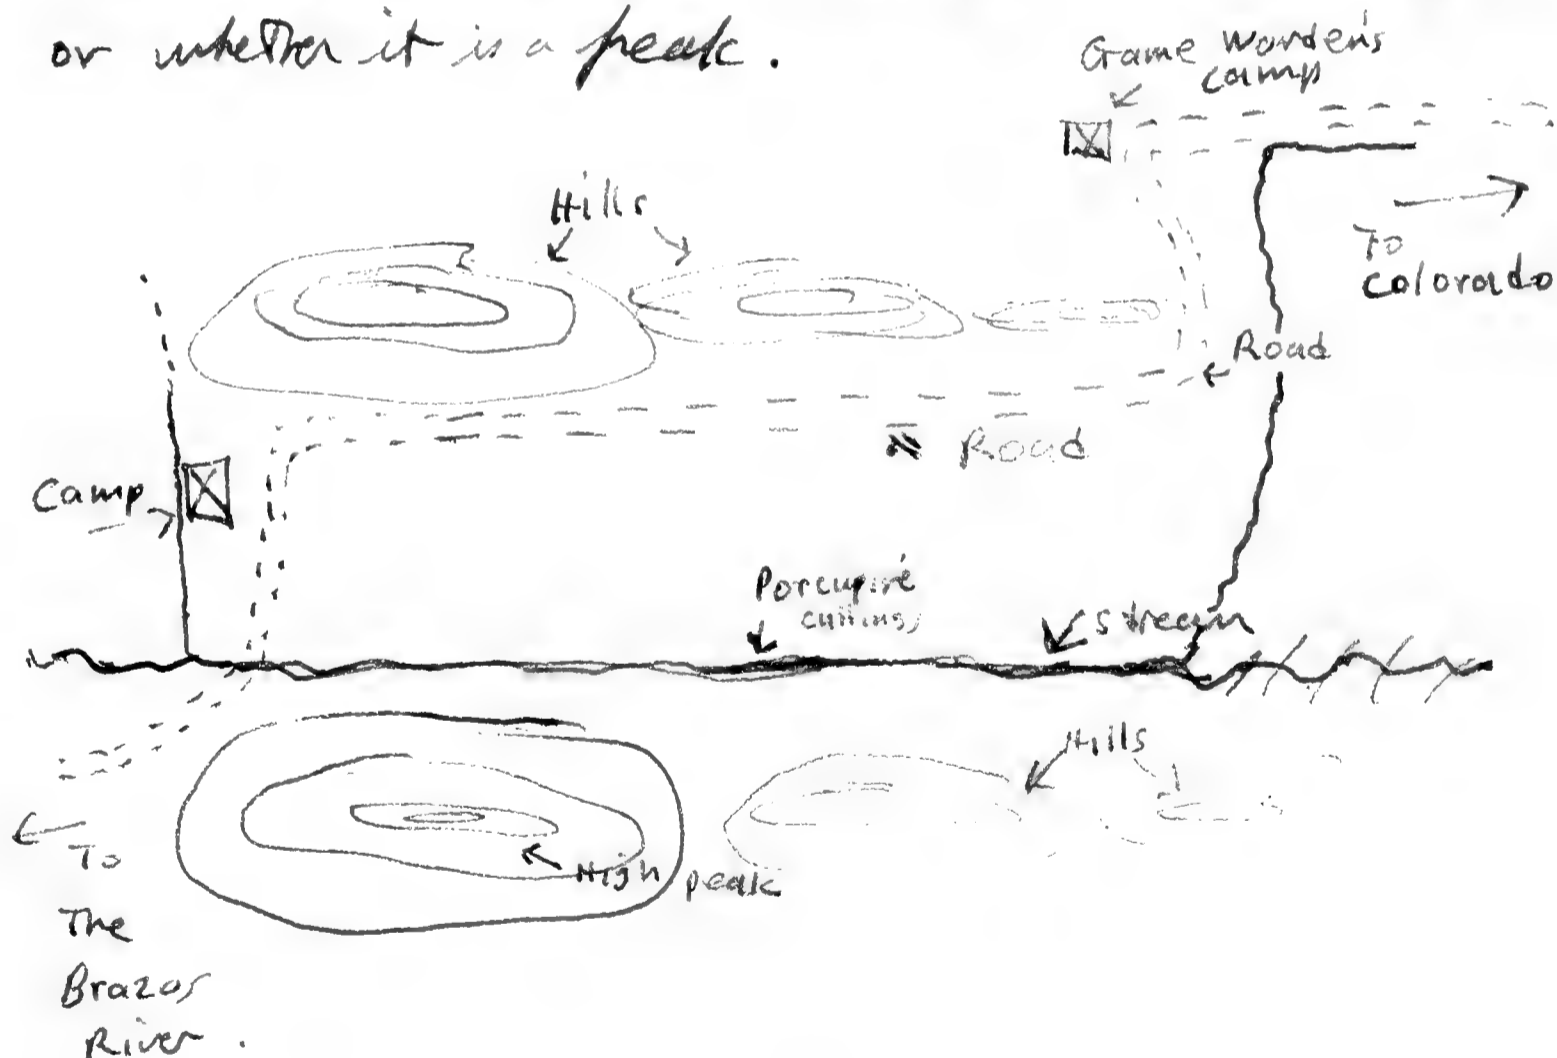 or whether it is a peak.
Game Warden's
camp
Hills
To
Colorado
Road
Road
Camp
Porcupine
cuttings
stream
Hills
High peak
To
The
Brazos
River.